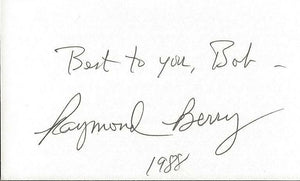 Best to you, Bob -
Raymond Berry
1988